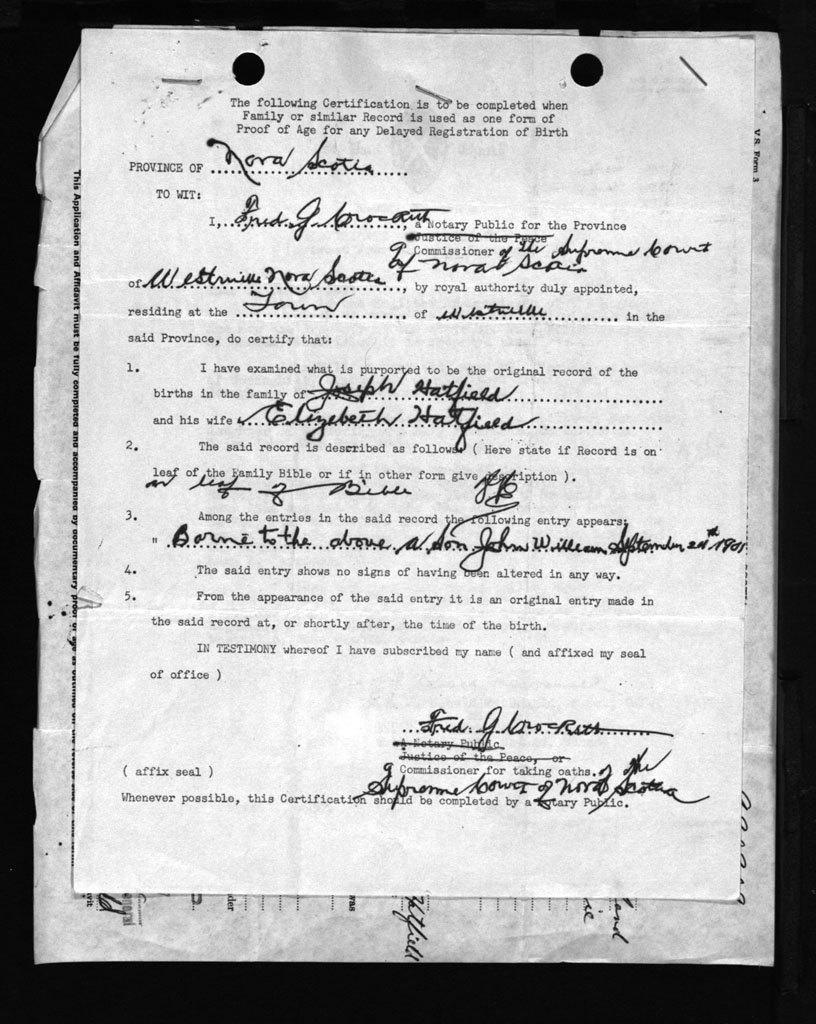 The following Certification is to be completed when
Family or similar Record is used as one form of
Proof of Age for any Delayed Registration of Birth
V.S. Form 3
PROVINCE OF Nova Scotia
TO WIT:
I, Fred G , a Notary Public for the Province
Justice of the Peace
Commissioner of the Supreme Court
of Nova Scotia
of Westville Nova Scotia, by royal authority duly appointed,
residing at the Town of Westville in the
said Province, do certify that:
1. I have examined what is purported to be the original record of the
births in the family of Joseph Hatfield
and his wife Elizabeth Hatfield
2. The said record is described as follows ( Here state if Record is on
leaf of the Family Bible or if in other form give description ).
on leaf of Bible
3. Among the entries in the said record the following entry appears:
" Borne to the above a son John William September 1901
4. The said entry shows no signs of having been altered in any way.
5. From the appearance of the said entry it is an original entry made in
the said record at, or shortly after, the time of the birth.
IN TESTIMONY whereof I have subscribed my name ( and affixed my seal
of office )
Fred. G
A Notary Public
Justice of the Peace, or
( affix seal ) Commissioner for taking oaths. of the
Supreme Court of Nova Scotia
Whenever possible, this Certification should be completed by a Notary Public.
This Application and Affidavit must be fully completed and accompanied by documentary proof of age as outlined on the
Hatfield
and